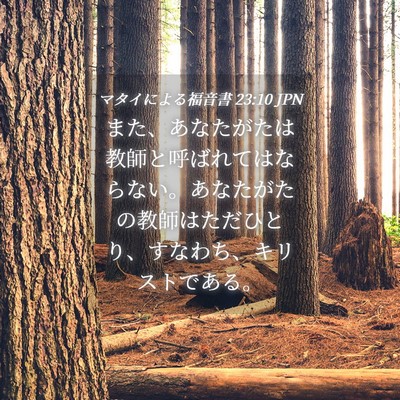 マタイによる福音書 23:10 JPN
また、あなたがたは
教師と呼ばれてはな
らない。あなたがた
の教師はただひと
り、すなわち、キリ
ストである。